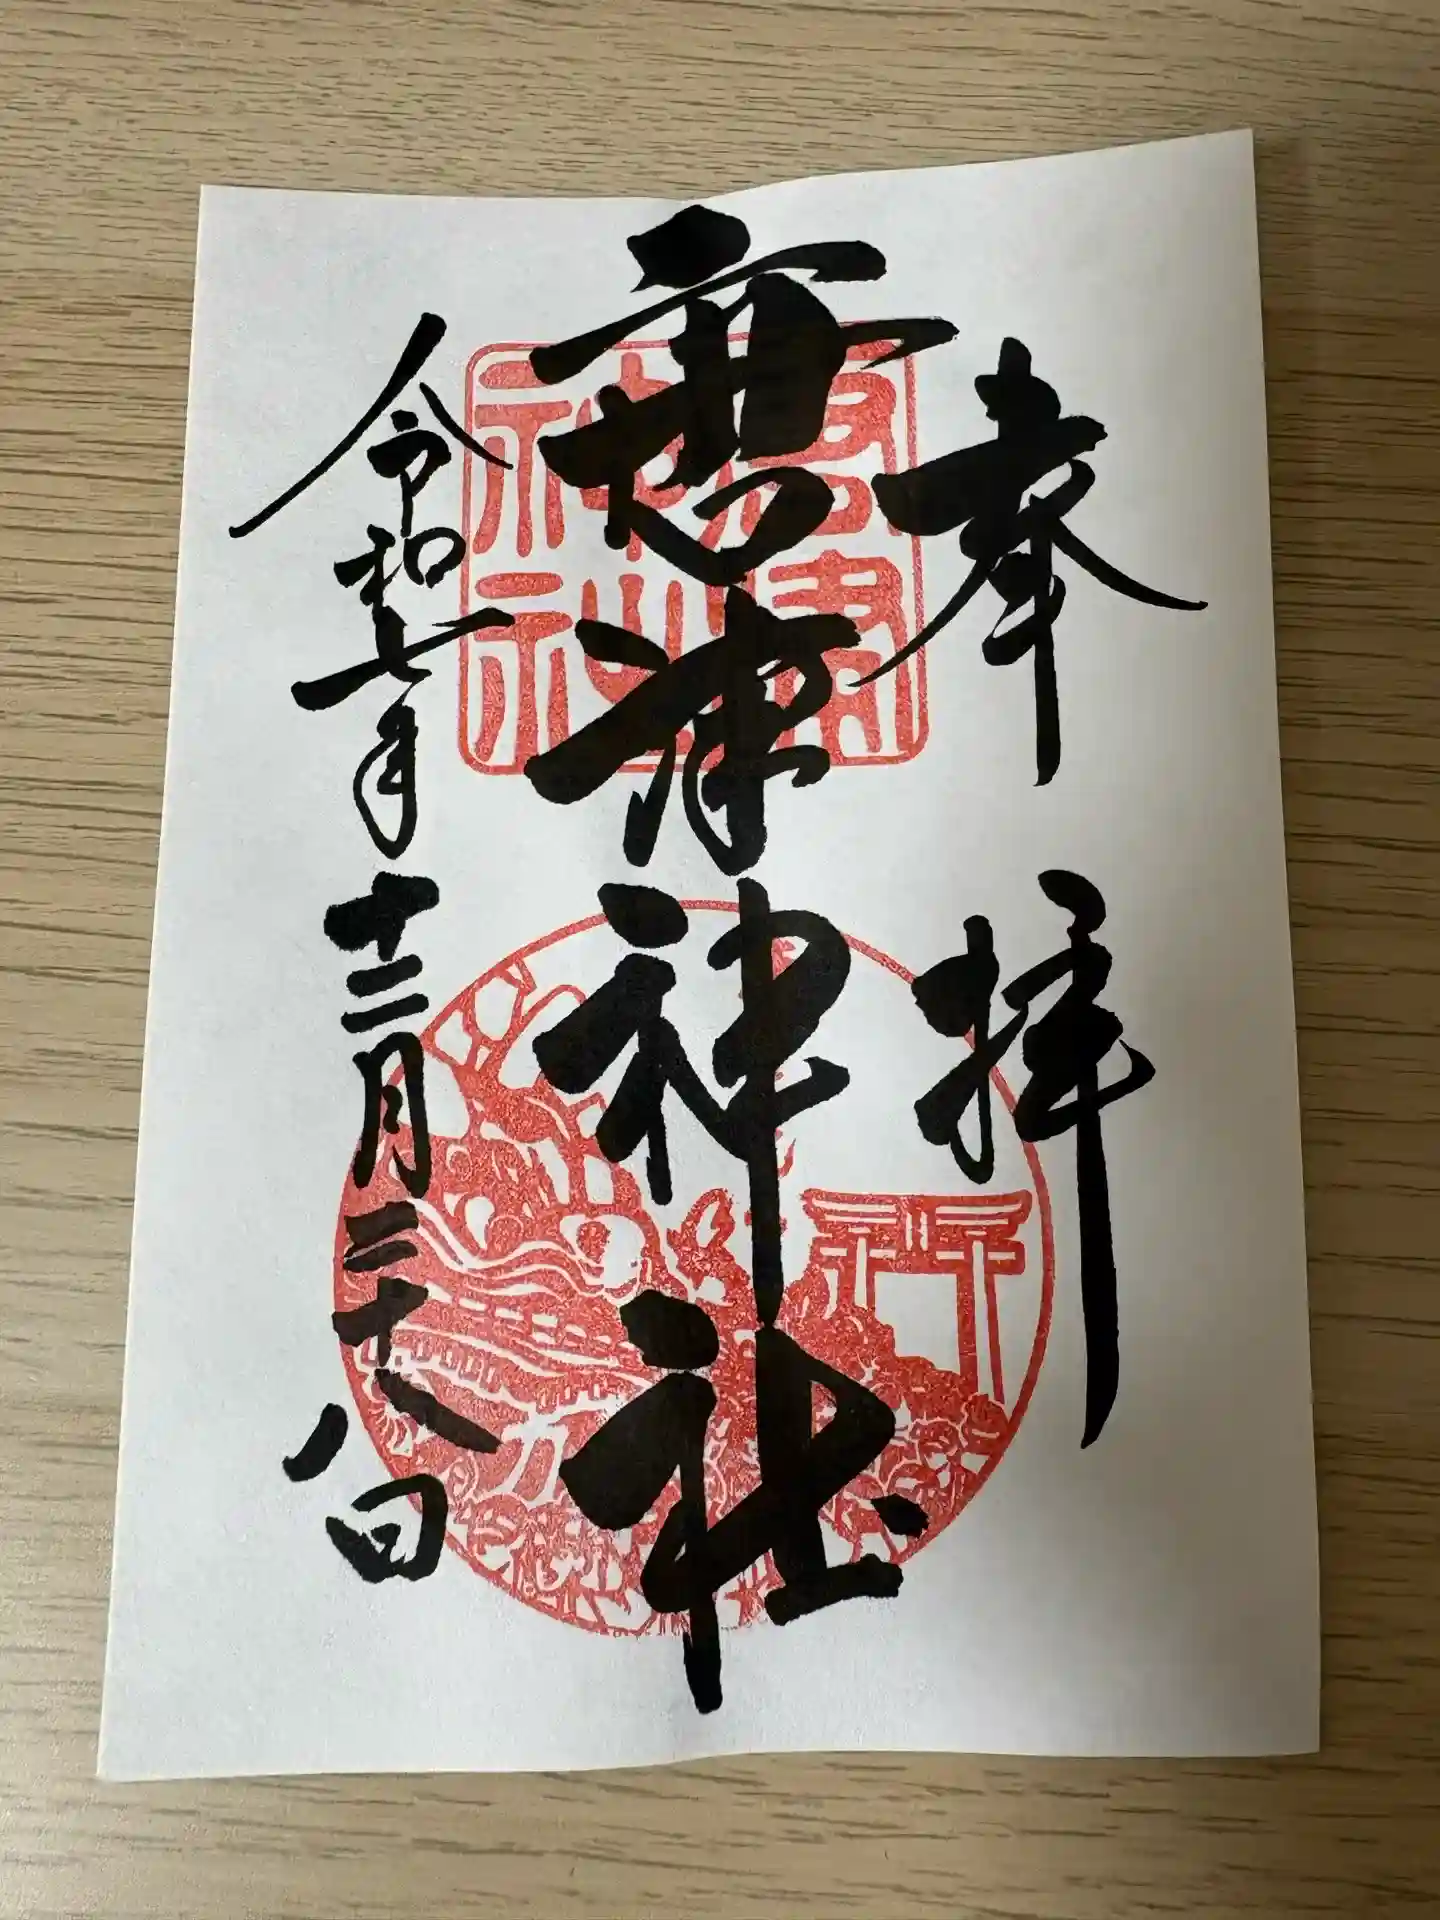 奉拝
津神社
令和七年十二月二十八日